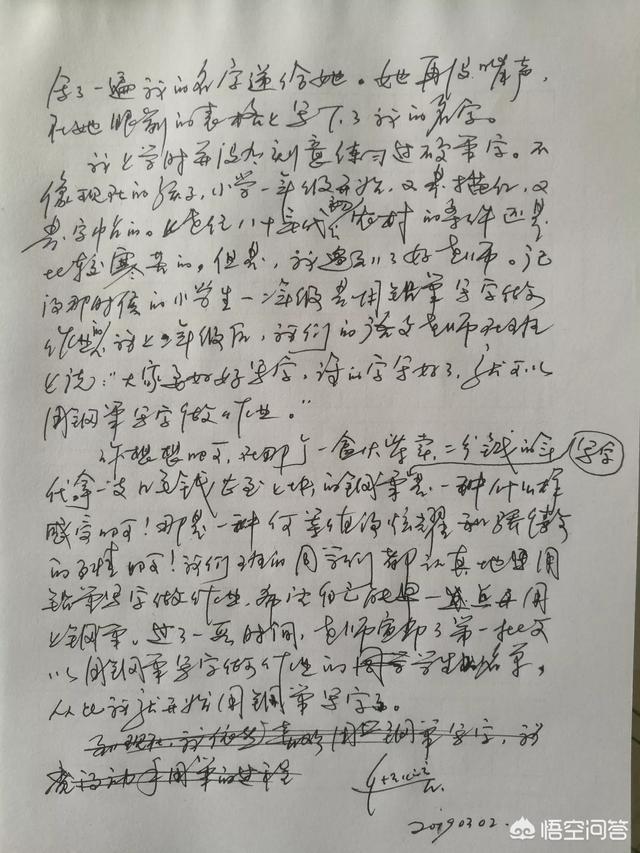 写了一遍我的名字递给她。她再没吭声,
在她眼前的表格上写下了我的名字。
我上学时并没有刻意练习过硬笔字。不
像现在的孩子,小学一年级开始,又是描红,又
是字帖的。上世纪八十年代初农村的条件还是
比较寒苦的。但是,我遇到了好老师。记
得那时候的小学生一二年级是用铅笔写字做
作业的,我上三年级后,我们的语文老师在班
上说:“大家要好好写字,谁的字写好了,就可以
用钢笔写字做作业。”
你想想吧,在那个一盒火柴卖二分钱的年
代拿一支几毛钱甚至上块的钢笔是一种什么样
感受的呀!那是一种何等值得炫耀和骄傲
的事情呀!我们班的同学们都认真地用
铅笔写字做作业,希望自己能早一点用
上钢笔。过了一段时间,老师宣布了第一批可
以用钢笔写字做作业的学生名单,
从此我就开始用钢笔写字了。
到现在,我依然喜欢用钢笔写字,我
写字
2019.03.02.
悟空问答